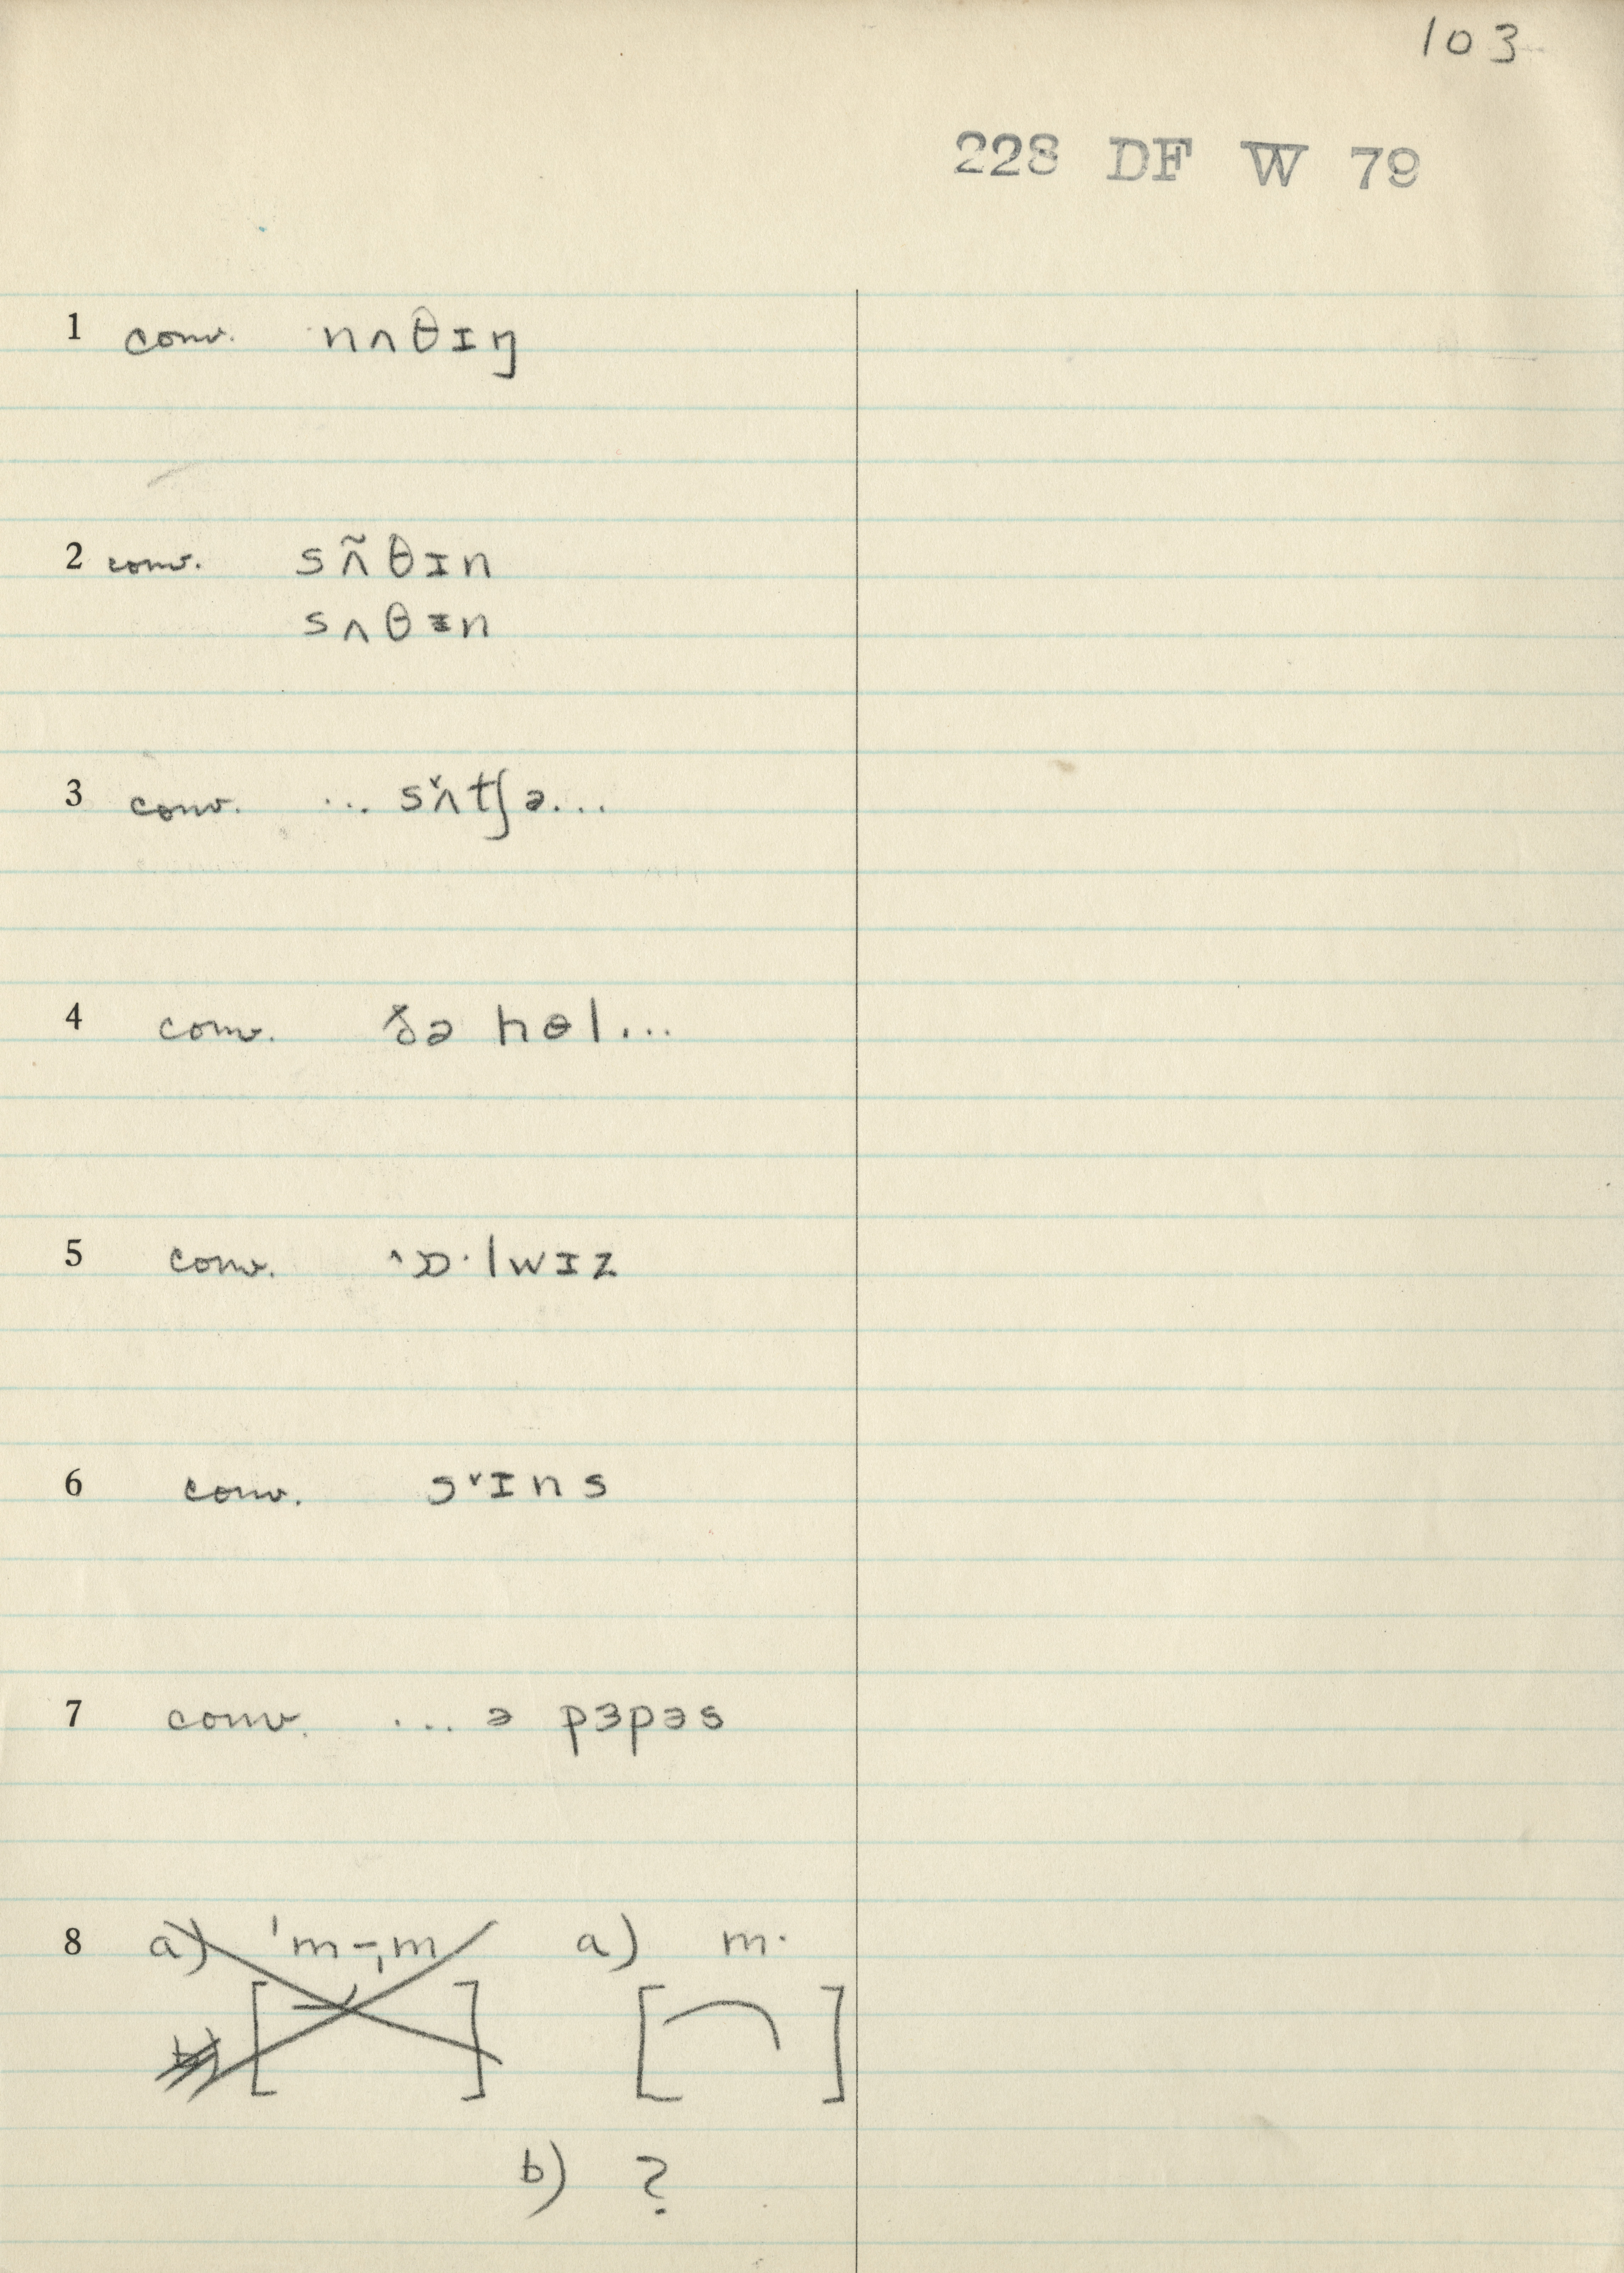 103
228 DF W 79
1 conv. nʌθɪŋ
2 conv. sʌ̃θɪn
sʌθᵻn
3 conv. ... s˅ʌtʃə...
4 conv. ðə hɵl...
5 conv. ˄ɒ·lwɪz
6 conv. s˅ɪns
7 conv. ... ə pɜpəs
8 a) 'm-ˌm a) m·
[ ] [ ]
b) ?